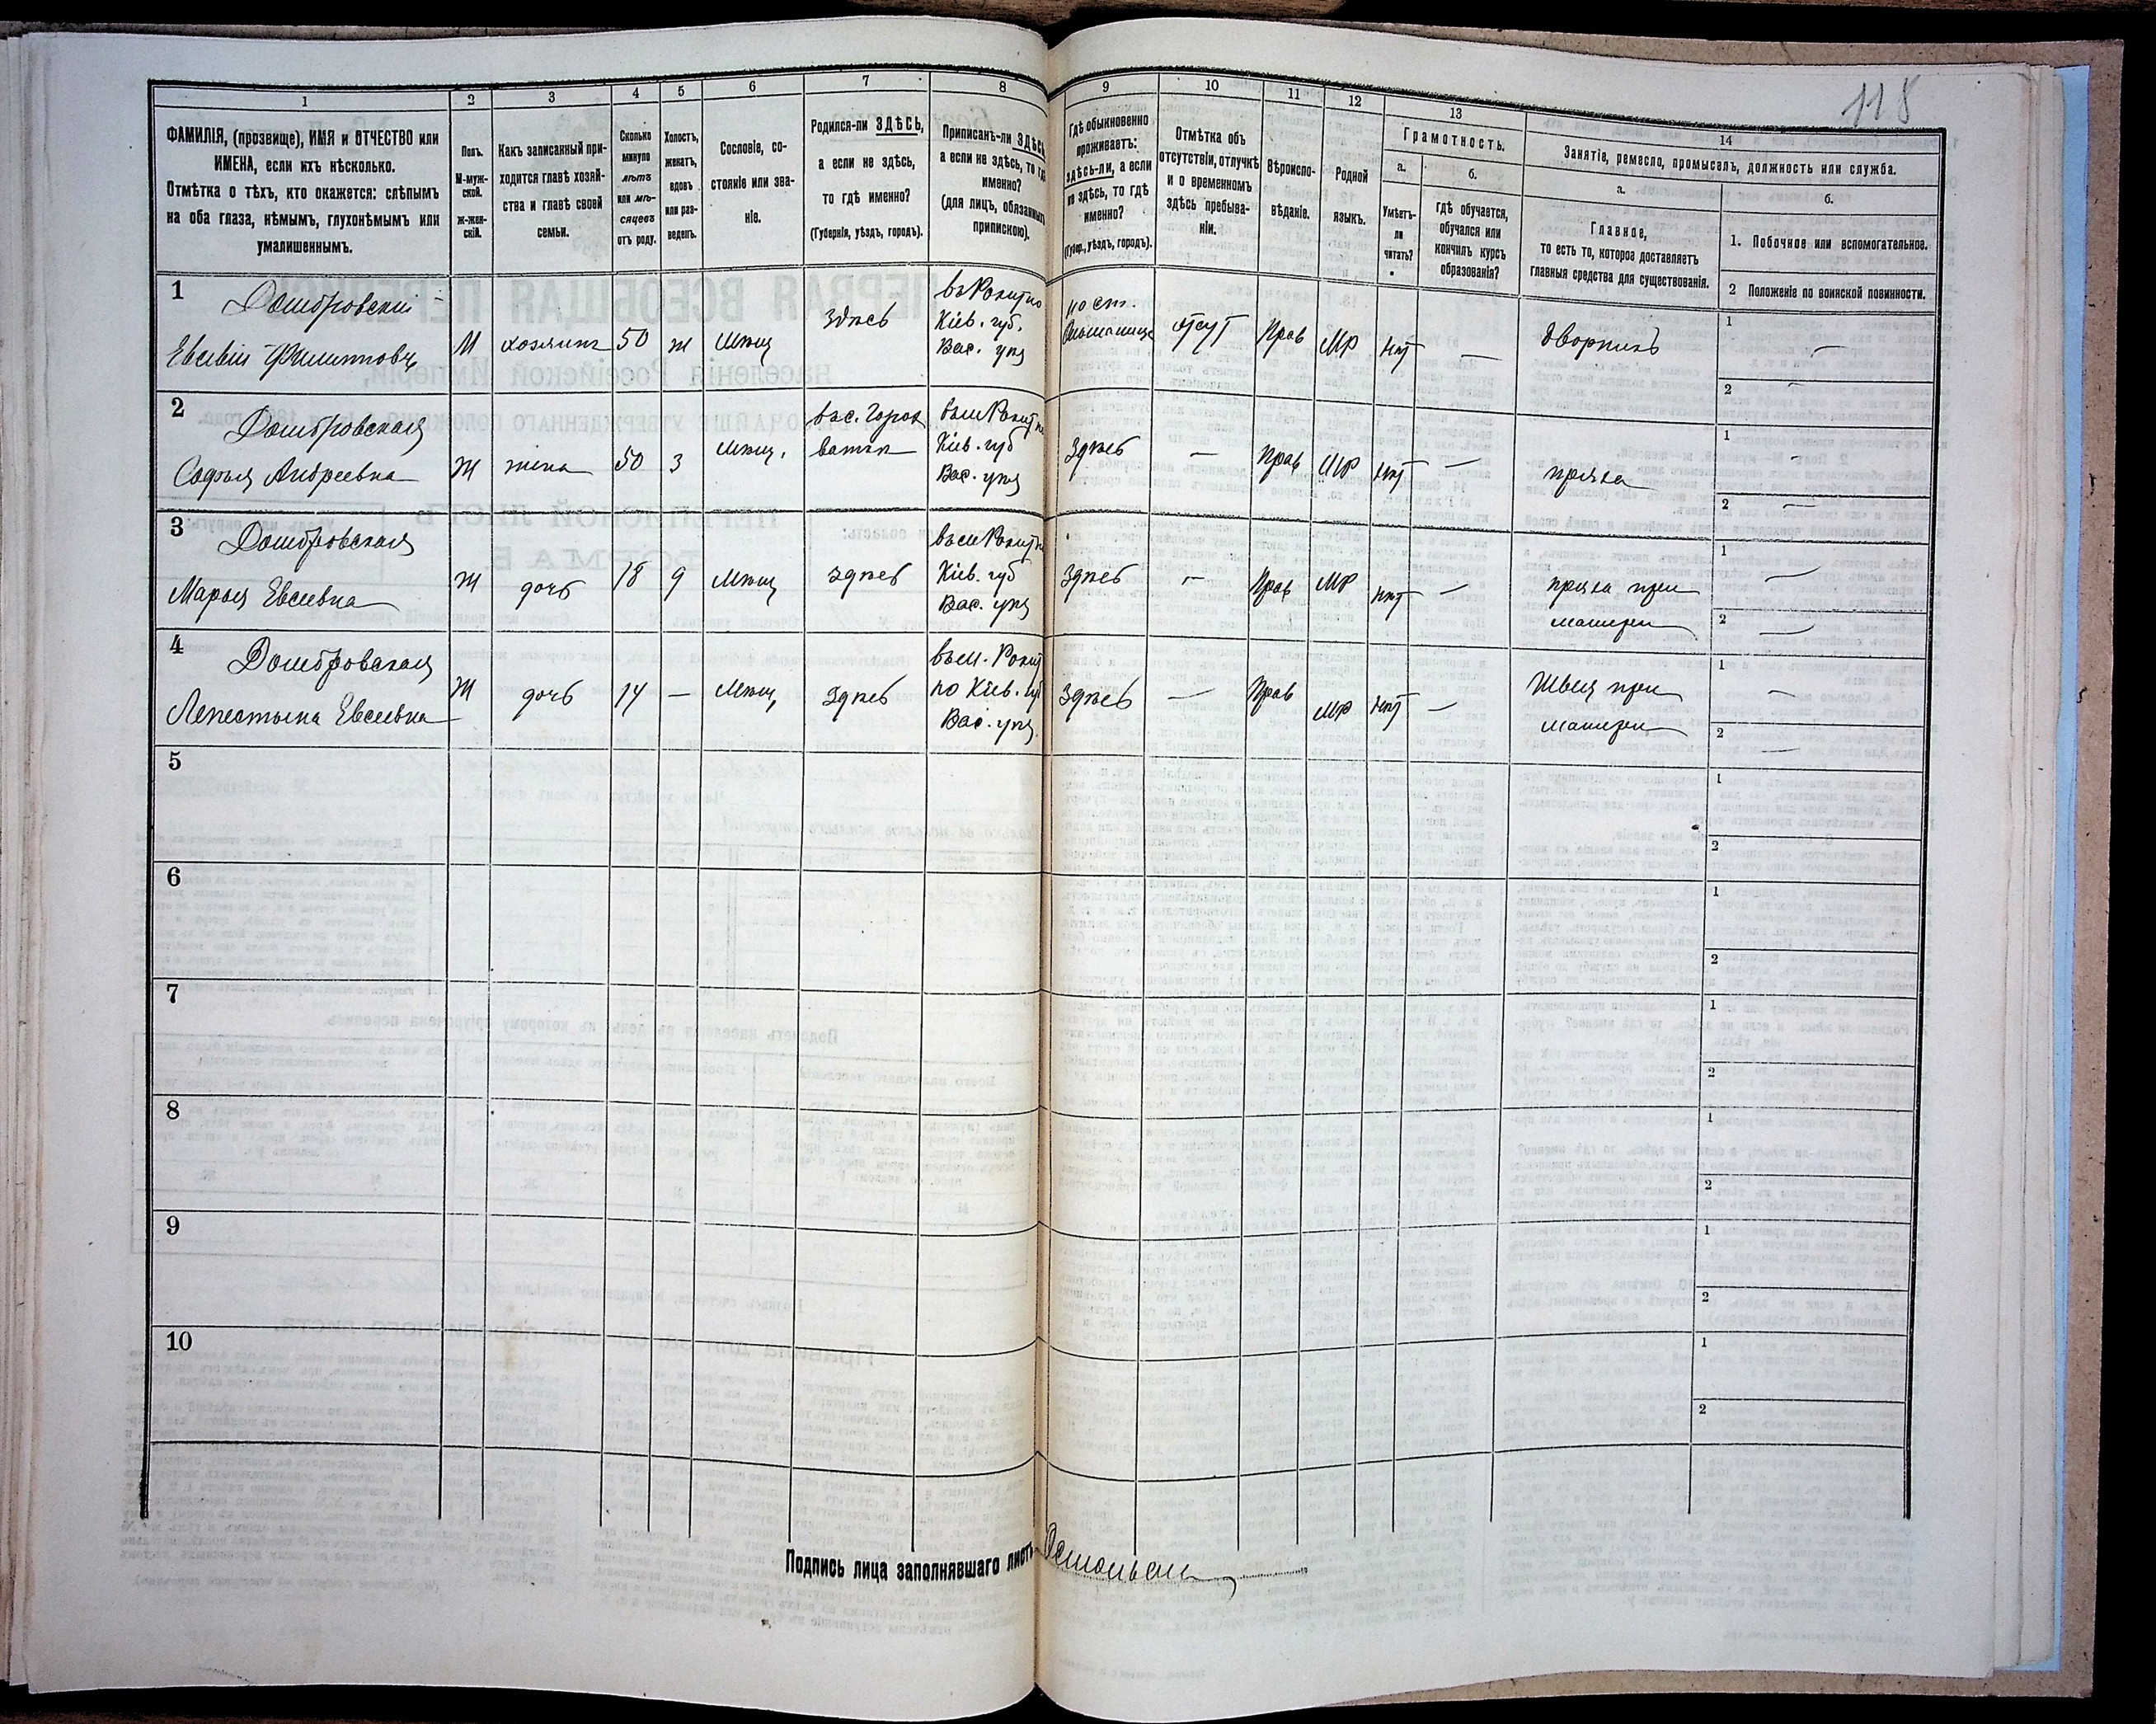 118
1
2
3
4
5
6
7
8
9
10
11
12
13
14
ФАМИЛІЯ, (прозвище), ИМЯ и ОТЧЕСТВО или
ИМЕНА, если ихъ нѣсколько.
Отмѣтка о тѣхъ, кто окажется: слѣпымъ
на оба глаза, нѣмымъ, глухонѣмымъ или
умалишеннымъ.
Полъ.
М-муж-
ской.
Ж-жен-
скій.
Какъ записанный при-
ходится главѣ хозяй-
ства и главѣ своей
семьи.
Сколько
минуло
лѣтъ
или мѣ-
сяцевъ
отъ роду.
Холостъ,
женатъ,
вдовъ
или раз-
веденъ.
Сословіе, со-
стояніе или зва-
ніе.
Родился-ли ЗДѢСЬ,
а если не здѣсь,
то гдѣ именно?
(Губернія, уѣздъ, городъ).
Приписанъ-ли ЗДѢСЬ,
а если не здѣсь, то гдѣ
именно?
(для лицъ, обязанныхъ
припискою).
Гдѣ обыкновенно
проживаетъ:
здѣсь-ли, а если
не здѣсь, то гдѣ
именно?
(Губер., уѣздъ, городъ).
Отмѣтка объ
отсутствіи, отлучкѣ
и о временномъ
здѣсь пребыва-
ніи.
Вѣроиспо-
вѣданіе.
Родной
языкъ.
Грамотность.
а.
б.
Умѣетъ-
ли
читать?
гдѣ обучается,
обучался или
кончилъ курсъ
образованія?
Занятіе, ремесло, промыселъ, должность или служба.
а.
б.
Главное,
то есть то, которое доставляетъ
главныя средства для существованія.
1. Побочное или вспомогательное.
2 Положеніе по воинской повинности.
1 Домбровскій
Евсевій Филиповъ
М
хозяинъ
50
ж
Мѣщ
здѣсь
въ Рокитно
Кіев. губ.
Вас. уѣз
на ст.
отсут
Прав
МР
нѣт
—
Дворникъ
1 —
2 —
2 Домбровская
Софья Андреевна
Ж
жена
50
З
Мѣщ.
въ с. Горох
ватки
въ м Рокитно
Кіев. губ
Вас. уѣз
Здѣсь
—
Прав
МР
нѣт
—
пряха
1 —
2 —
3 Домбровская
Марья Евсевна
Ж
дочь
18
9
Мѣщ
здѣсь
въ м Рокитно
Кіев. губ
Вас. уѣз
Здѣсь
—
Прав
МР
нѣт
—
пряха при
матери
1 —
2 —
4 Домбровская
Лепестына Евсевна
Ж
дочь
14
—
Мѣщ
здѣсь
въ м. Рокит
но Кіев. губ
Вас. уѣз.
Здѣсь
—
Прав
МР
нѣт
—
Швея при
матери
1 —
2 —
5
1
2
6
1
2
7
1
2
8
1
2
9
1
2
10
1
2
Подпись лица заполнявшаго листъ